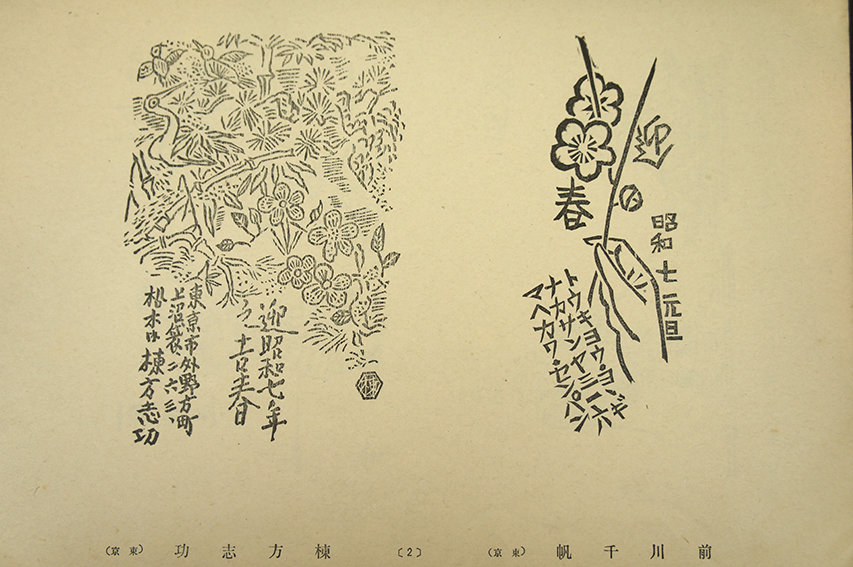 迎
春
昭和七元旦
トウキヨウ・ヨヽギ
ナカサンヤ三一六
マヘカワ・センパン
前川千帆（東京）
迎昭和七年
之吉春
東京市外野方町
上沼袋二六三、
松木内 棟方志功
〔2〕
棟方志功（東京）